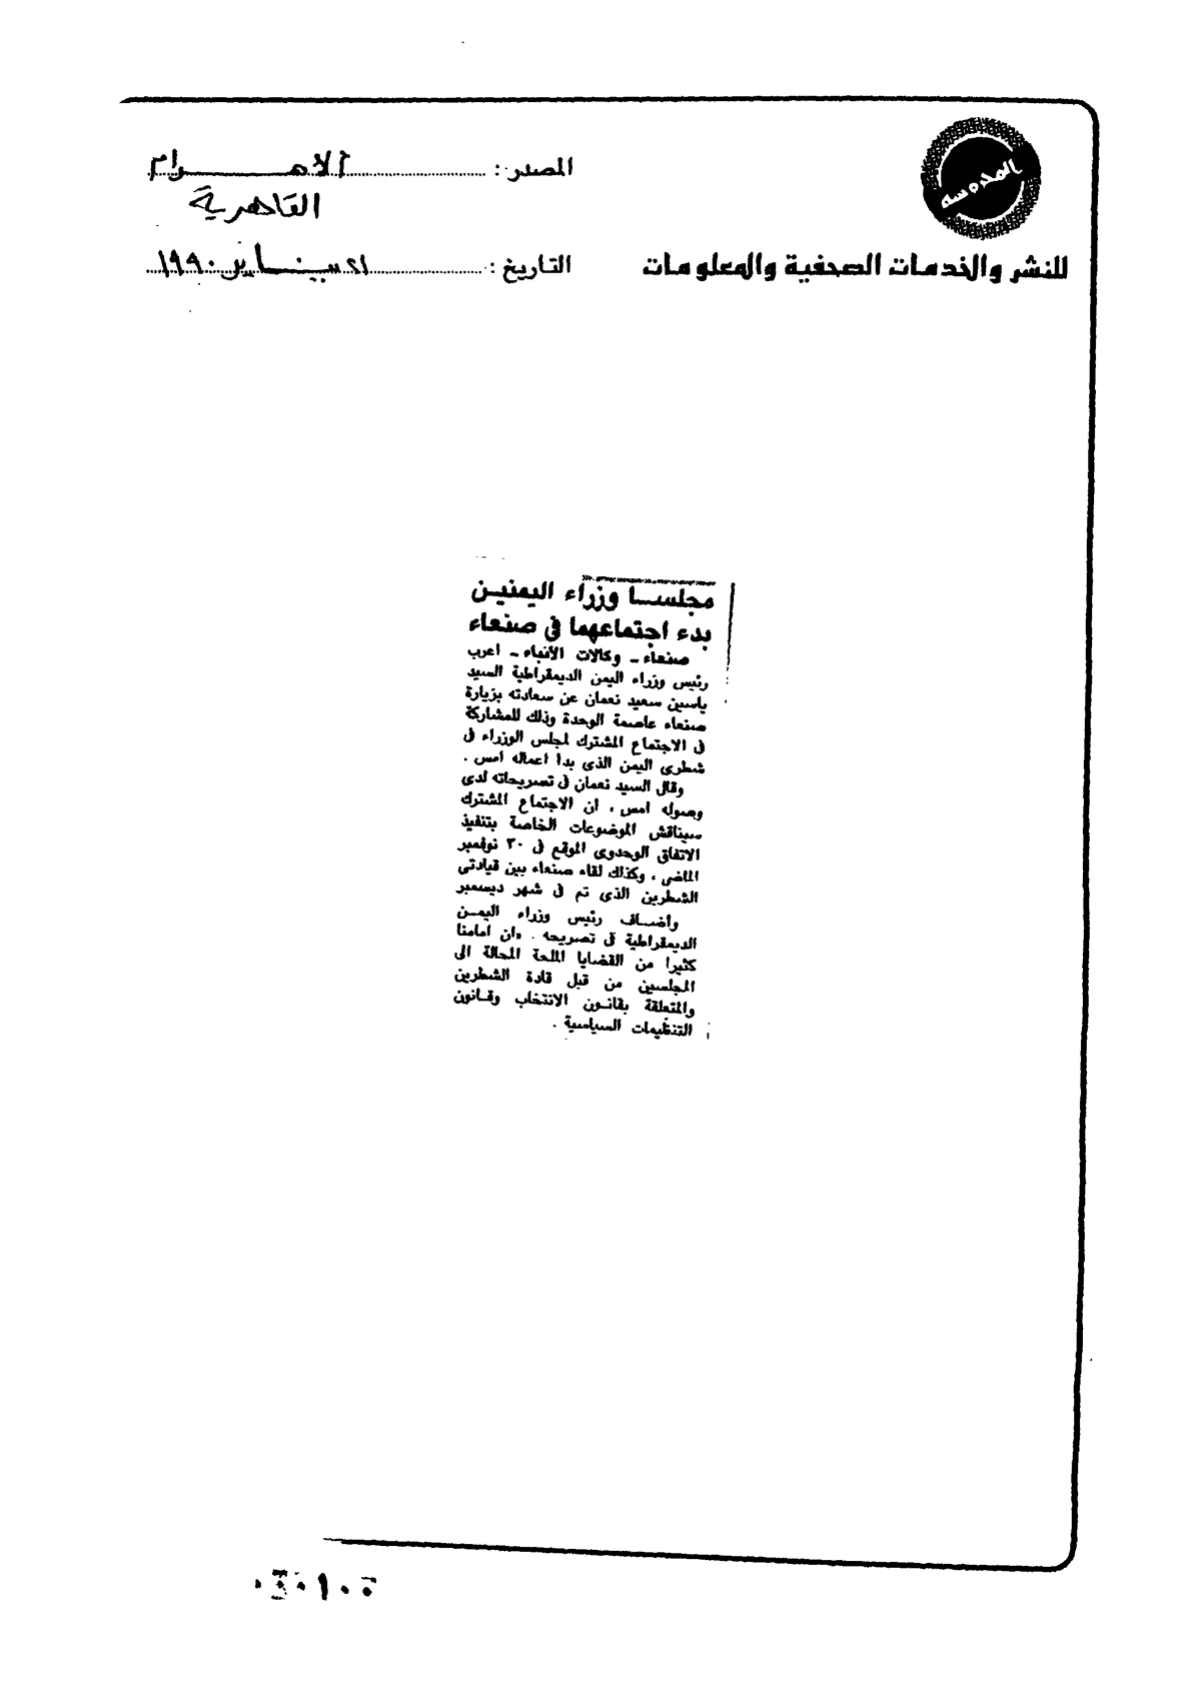 المحروسة
للنشر والخدمات الصحفية والمعلومات
المصدر : الأهرام
القاهرية
التاريخ : ٢١ يناير ١٩٩٠
مجلسا وزراء اليمنين
بدء اجتماعهما فى صنعاء
صنعاء - وكالات الأنباء - اعرب
رئيس وزراء اليمن الديمقراطية السيد
ياسين سعيد نعمان عن سعادته بزيارة
صنعاء عاصمة الوحدة وذلك للمشاركة
فى الاجتماع المشترك لمجلس الوزراء فى
شطرى اليمن الذى بدا اعماله امس .
وقال السيد نعمان فى تصريحاته لدى
وصوله امس ، ان الاجتماع المشترك
سيناقش الموضوعات الخاصة بتنفيذ
الاتفاق الوحدوى الموقع فى ٣٠ نوفمبر
الماضى ، وكذلك لقاء صنعاء بين قيادتى
الشطرين الذى تم فى شهر ديسمبر
واضاف رئيس وزراء اليمن
الديمقراطية فى تصريحه . «ان امامنا
كثيرا من القضايا الملحة المحالة الى
المجلسين من قبل قادة الشطرين
والمتعلقة بقانون الانتخاب وقانون
التنظيمات السياسية .